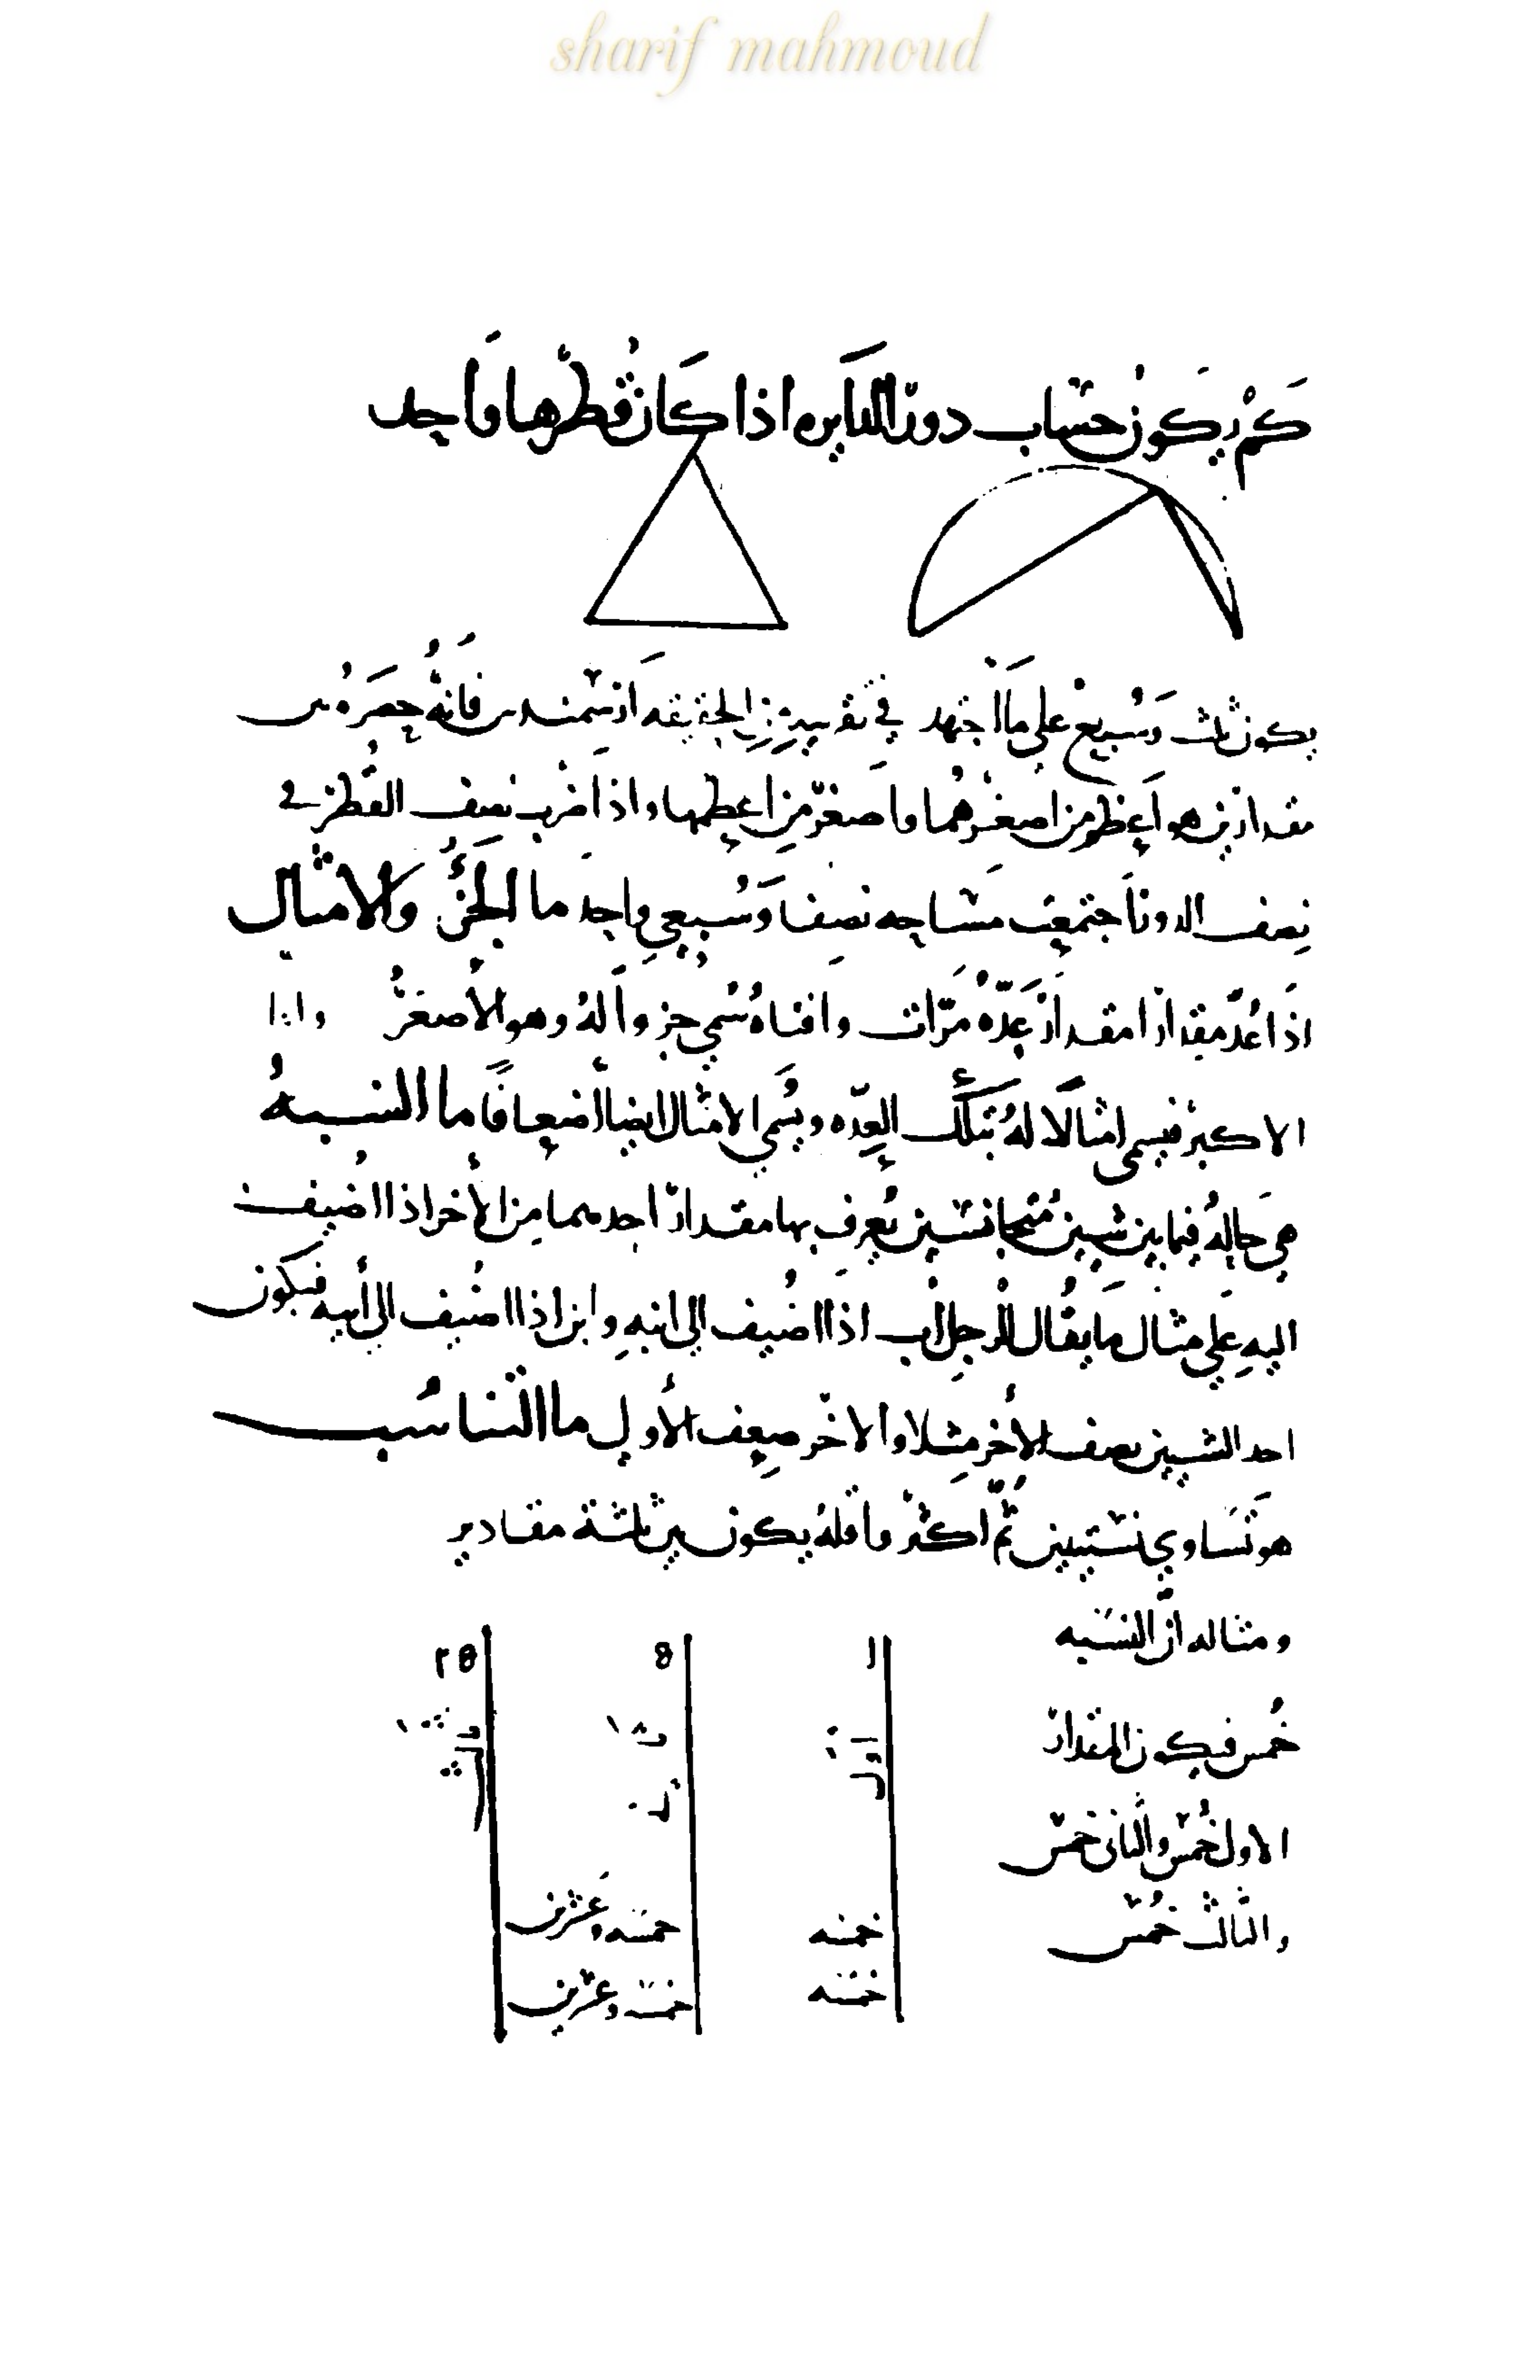 sharif mahmoud
كم يكون حساب دور الدايره اذا كان قطرها واحد
يكون ثلث وسبيع على ما اجتهد في تقريبه من الحقيقه ارشميدس فانه حصره بين
مقدارين هو اعظم من اصغرهما واصغر من اعظمها واذا ضرب نصف القطر في
نصف الدور اجتمعت مساحه نصفا وسبعي واحد ما الجزُ والامثال
اذا عدّ مقدارا مقدار عدّه مرّات وافناه سُمي جزوا له وهو الاصغر واذا
الاكبر فيسمى امثالا له بتلك العدّه ويسمى الامثال ايضا اضعافا ما النسبه
هي حاله فيما بين شيين متجانسين يعرف بها مقدار احدهما من الأخر اذا اضيف
اليهِ على مثال ما يقال للرجل اب اذا اضُيف الى ابنهِ وابن اذا اضُيف الى أبيه فيكون
احد الشيين نصف الأخر مثلا والاخر ضعف الأول ما التناسُب
هو تساوي نسبتين ثمّ اكثر واقله يكون بين ثلثة مقادير
ومثاله انّ النسبه
خُمس فيكون المقدار
الاول خُمس والثاني خمس
والثالث خُمس
١ 8 ٢8
خمسه خمسه وعشرين
خمسه خمسه وعشرين